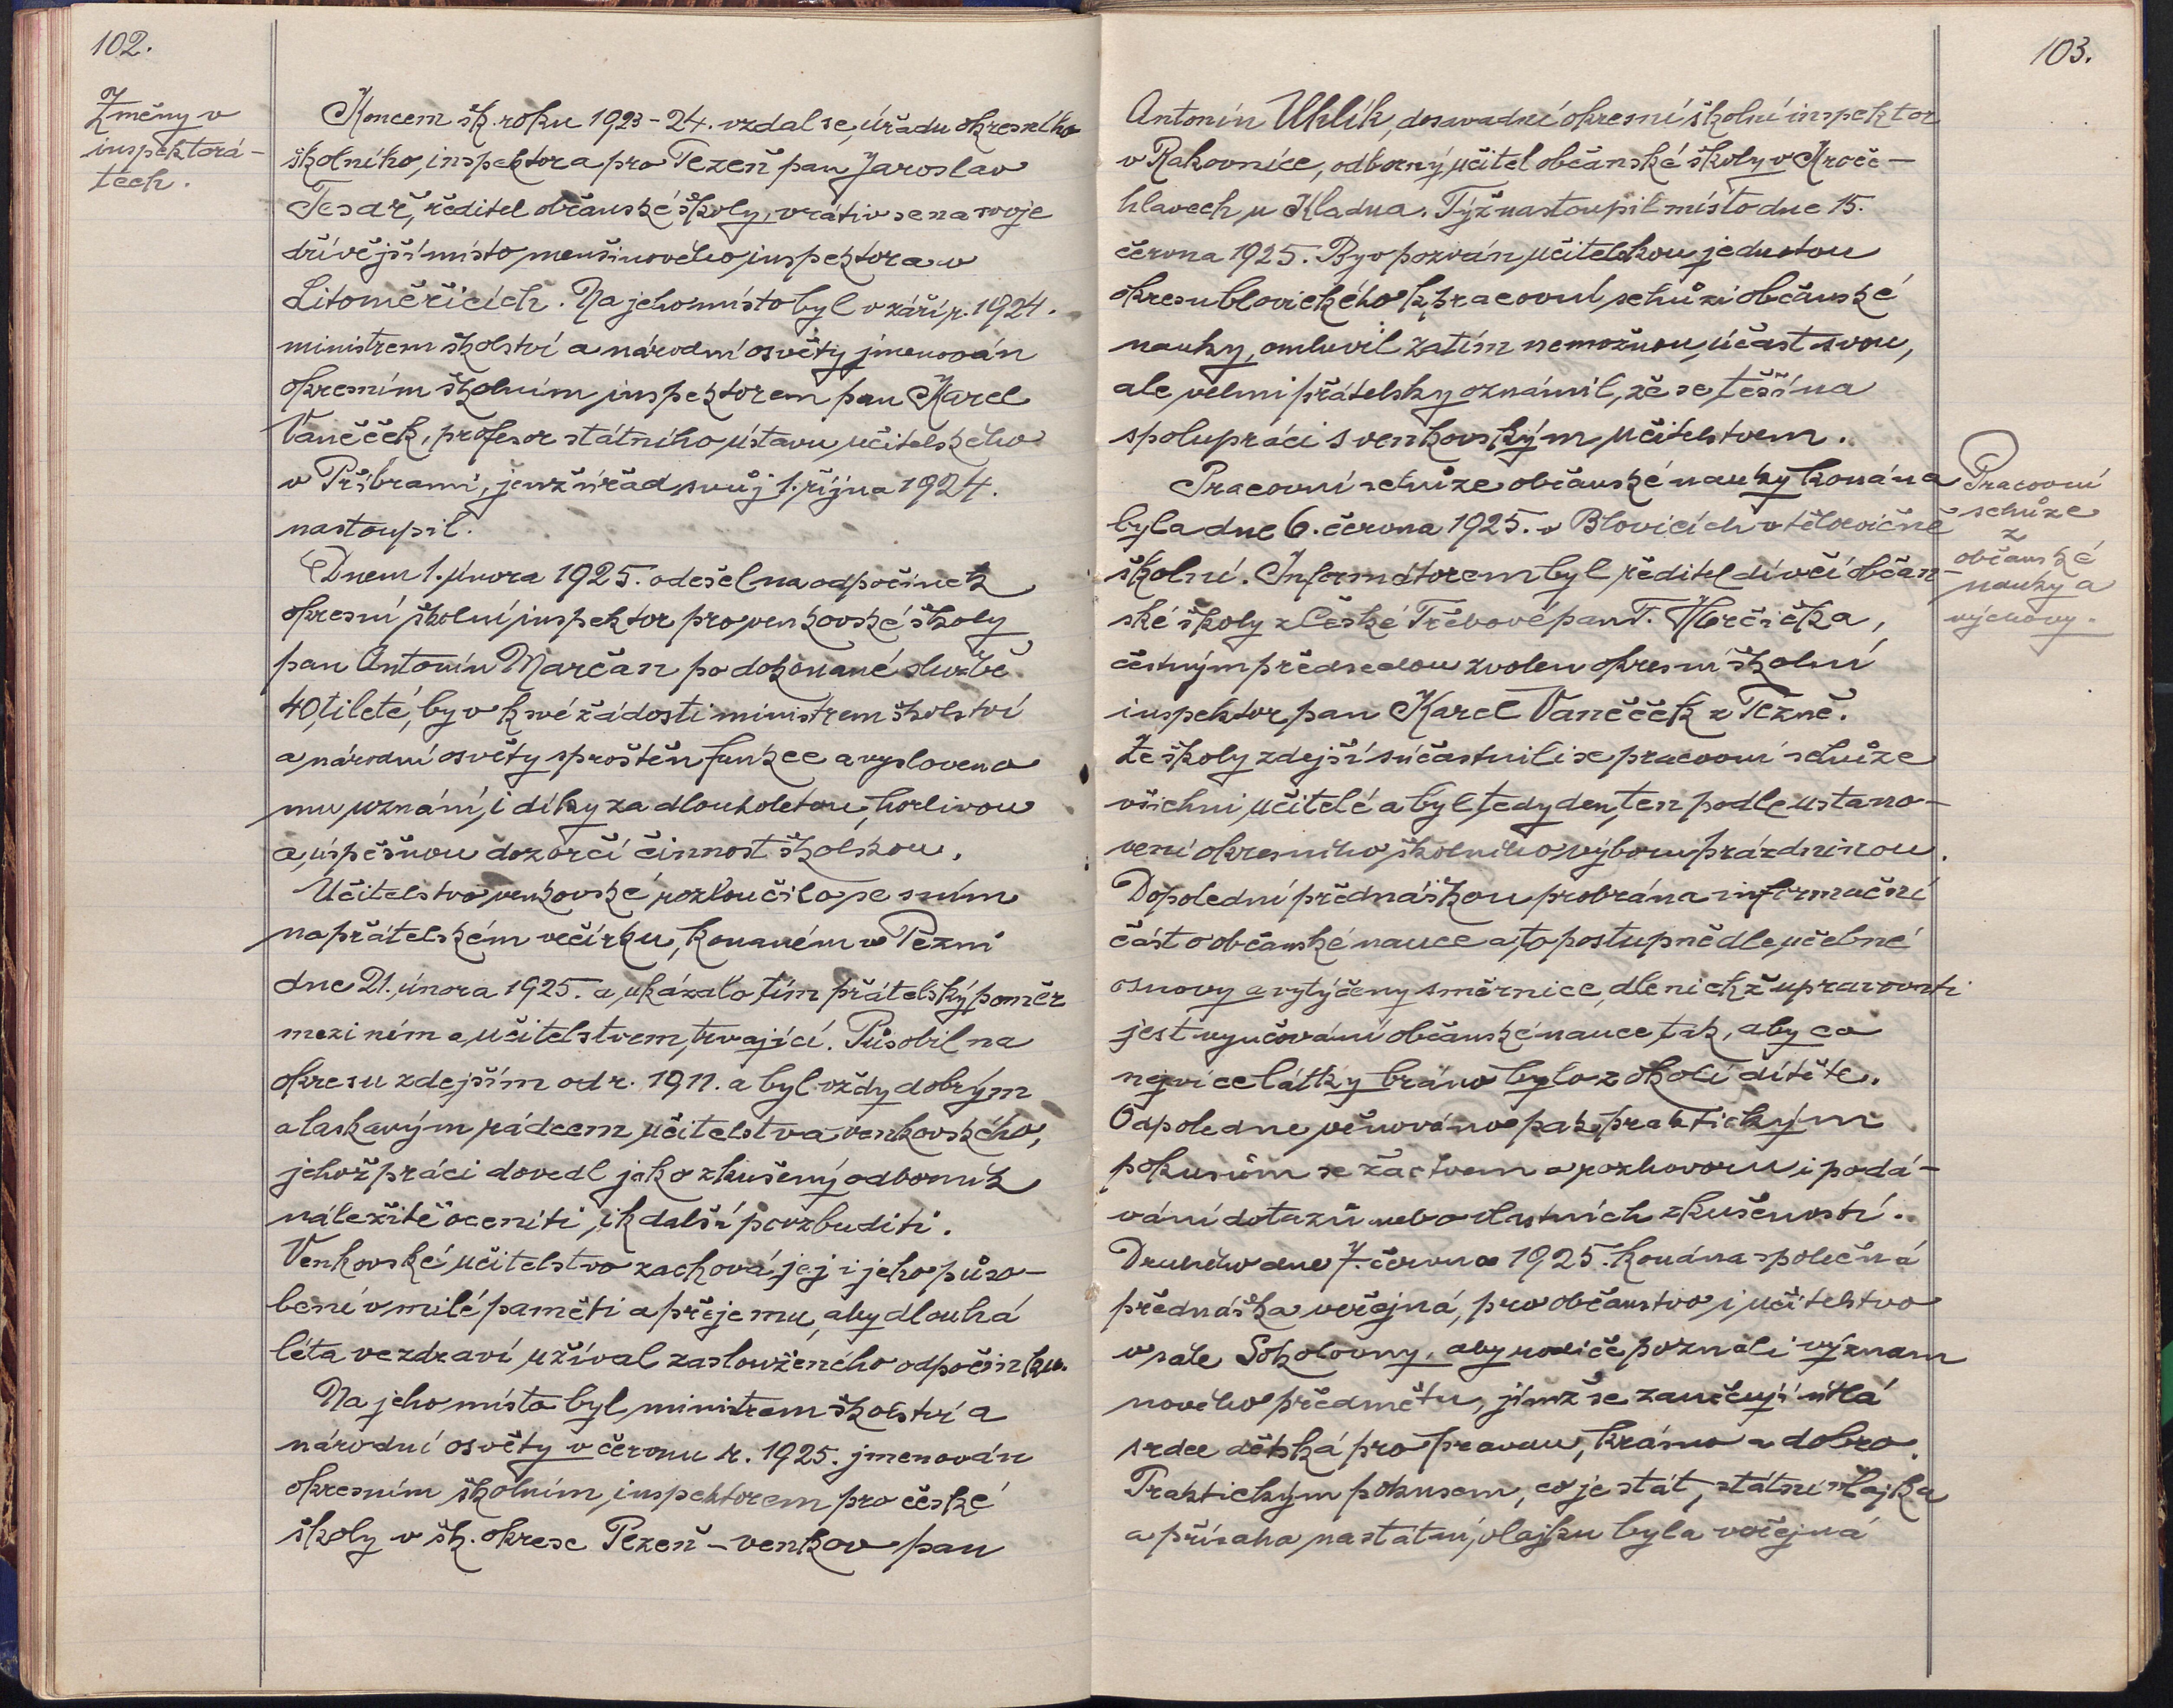 102.
Změny v
inspektorá-
tech.
Koncem šk. roku 1923-24. vzdal se úřadu okresního
školního inspektora pro Plzeň pan Jaroslav
Tesař, ředitel občanské školy, vrátiv se na svoje
dřívější místo menšinového inspektora v
Litoměřicích. Na jeho místo byl v září r. 1924.
ministrem školství a národní osvěty jmenován
okresním školním inspektorem pan Karel
Vaněček, profesor státního ústavu učitelského
v Příbrami, jenž úřad svůj 1. října 1924.
nastoupil.
Dnem 1. února 1925. odešel na odpočinek
okresní školní inspektor pro venkovské školy
pan Antonín Marčan po dokonané službě
40tileté, byv k své žádosti ministrem školství
a národní osvěty sproštěn funkce a vysloveno
mu uznání i díky za dlouholetou, horlivou
a úspěšnou dozorčí činnost školskou.
Učitelstvo venkovské rozloučilo se s ním
na přátelském večírku, konaném v Plzni
dne 21. února 1925. a ukázalo tím přátelský poměr
mezi ním a učitelstvem trvající. Působil na
okresu zdejším od r. 1911. a byl vždy dobrým
a laskavým rádcem učitelstva venkovského,
jehož práci dovedl jako zkušený odborník
náležitě oceniti i k další povzbuditi.
Venkovské učitelstvo zachová jej i jeho půso-
bení v milé paměti a přeje mu, aby dlouhá
léta ve zdraví užíval zaslouženého odpočinku.
Na jeho místo byl ministrem školství a
národní osvěty v červnu r. 1925. jmenován
okresním školním inspektorem pro české
školy v šk. okrese Plzeň-venkov pan
103.
Antonín Uhlík, dosavadní okresní školní inspektor
v Rakovníce, odborný učitel občanské školy v Kroče-
hlavech u Kladna. Týž nastoupil místo dne 15.
června 1925. Byv pozván učitelskou jednotou
okresu blovického k pracovní schůzi občanské
nauky, omluvil zatím nemožnou účast svou,
ale velmi přátelsky oznámil, že se těší na
spolupráci s venkovským učitelstvem.
Pracovní
schůze
z
občanské
nauky a
výchovy.
Pracovní schůze občanské nauky konána
byla dne 6. června 1925. v Blovicích v tělocvičně
školní. Informátorem byl ředitel dívčí občan-
ské školy z České Třebové pan F. Horčička,
čestným předsedou zvolen okresní školní
inspektor pan Karel Vaněček z Plzně.
Ze školy zdejší súčastnili se pracovní schůze
všichni učitelé a byl tedy den ten podle ustano-
vení okresního školního výboru prázdninou.
Dopolední přednáškou probrána informační
část o občanské nauce a to postupně dle učebné
osnovy a vytýčeny směrnice, dle nichž upravovati
jest vyučování občanské nauce tak, aby co
nejvíce látky bráno bylo z okolí dítěte.
Odpoledne věnováno pak praktickým
pokusům se žactvem a rozhovoru i podá-
vání dotazů nebo vlastních zkušeností.
Druhého dne 7. června 1925. konána společná
přednáška veřejná, pro občanstvo i učitelstvo
v sále Sokolovny, aby rodiče poznali význam
nového předmětu, jímž se zaučují mladá
srdce dětská pro pravdu, krásno a dobro.
Praktickým pokusem, co je stát, státní vlajka
a přísaha na státní vlajku byla veřejná